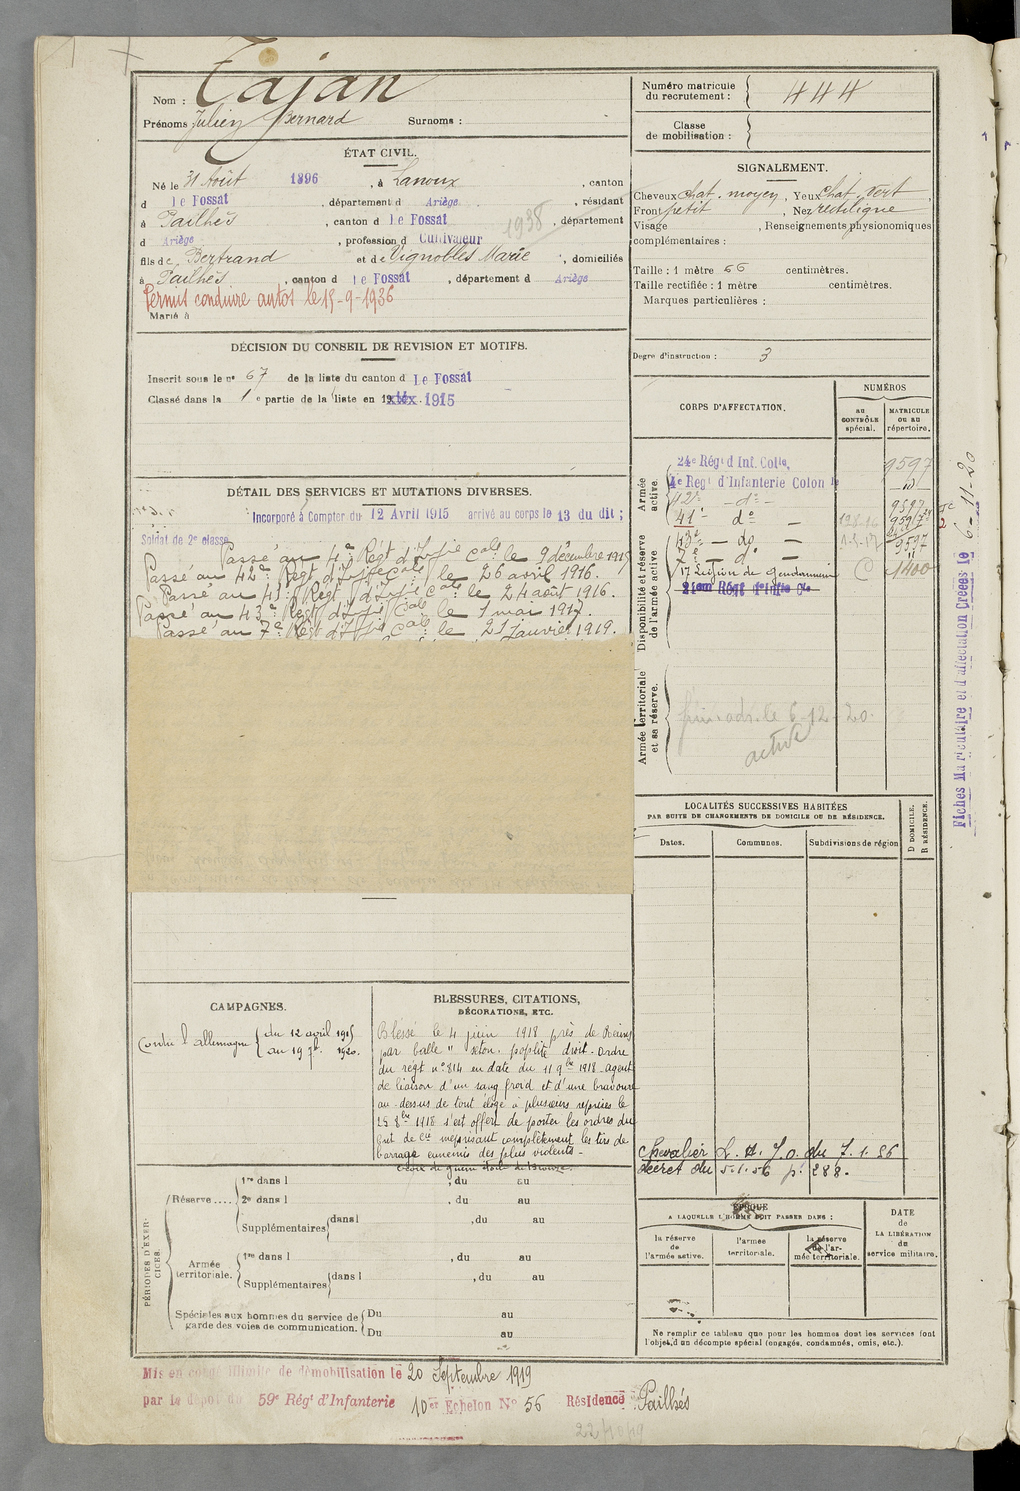 Nom : Tajan
Prénoms : Julien Bernard Surnoms :
ÉTAT CIVIL.
Né le 31 Août 1896, à Lanoux, canton
d Le Fossat, département d Ariège, résidant
à Pailhès, canton d Le Fossat, département
1938
d Ariège, profession d Cultivateur
fils de Bertrand et de Vignobles Marie, domiciliés
à Pailhès, canton d Le Fossat, département d Ariège
Permis conduire autos le 15-9-1936
Marié à
DÉCISION DU CONSEIL DE REVISION ET MOTIFS.
Inscrit sous le no 67 de la liste du canton d Le Fossat
Classé dans la 1e partie de la liste en 1915
DÉTAIL DES SERVICES ET MUTATIONS DIVERSES.
Incorporé à Compter du 12 Avril 1915 arrivé au corps le 13 du dit ;
Soldat de 2e classe
Passé au 4e Régt d'Infie Cale le 9 décembre 1915
Passé au 42e Régt d'Infie Cale le 26 avril 1916.
Passé au 41e Régt d'Infie Cale le 24 août 1916.
Passé au 43e Régt d'Infie Cale le 1 mai 1917.
Passé au 7e Régt d'Infie Cale le 21 janvier 1919.
CAMPAGNES.
Contre l'allemagne { du 12 avril 1915
au 19 7bre 1920.
BLESSURES, CITATIONS,
DÉCORATIONS, ETC.
Blessé le 4 juin 1918 près de Reims
par balle " séton. poplité droit. Ordre
du régt no 814 en date du 11 9bre 1918. agent
de liaison d'un sang froid et d'une bravoure
au-dessus de tout éloge à plusieurs reprises le
25 8bre 1918 s'est offert de porter les ordres du
Cdt de Cie méprisant complètement les tirs de
barrage ennemis des plus violents -
Croix de guerre étoile de Bronze.
PÉRIODES D'EXERCICES.
Réserve.... 1re dans l , du au
2e dans l , du au
Supplémentaires dans l , du au
Armée territoriale. 1re dans l , du au
Supplémentaires dans l , du au
Spéciales aux hommes du service de garde des voies de communication. Du au
Du au
Mis en congé illimité de démobilisation le 20 Septembre 1919
par le dépôt du 59e Régt d'Infanterie 10er Echelon No 56 Résidence : Pailhès
22/10/19
Numéro matricule
du recrutement : 444
Classe
de mobilisation :
SIGNALEMENT.
Cheveux chat. moyen, Yeux chat. vert,
Front petit, Nez rectiligne
Visage , Renseignements physionomiques
complémentaires :
Taille : 1 mètre 66 centimètres.
Taille rectifiée : 1 mètre centimètres.
Marques particulières :
Degré d'instruction : 3
CORPS D'AFFECTATION.
NUMÉROS
AU CONTRÔLE spécial.
MATRICULE OU AU répertoire.
Armée active.
24e Régt d'Inf. Colle. 9597
4e Regt d'Infanterie Colon le
42e - do - 9597
41e do -
Disponibilité et réserve de l'armée active
43e - do - 9597
7e - do -
17 Légion de Gendarmerie C 1400
Armée territoriale et sa réserve.
6-12-20.
active
LOCALITÉS SUCCESSIVES HABITÉES
PAR SUITE DE CHANGEMENTS DE DOMICILE OU DE RÉSIDENCE.
Dates. Communes. Subdivisions de région
D DOMICILE. R RÉSIDENCE.
Chevalier L. H. J.O. du 7.1.56
décret du 5.1.56 p. 288.
ÉPOQUE
A LAQUELLE L'HOMME DOIT PASSER DANS :
la réserve de l'armée active.
l'armée territoriale.
la réserve de l'armée territoriale.
DATE de LA LIBÉRATION du service militaire.
Ne remplir ce tableau que pour les hommes dont les services font
l'objet d'un décompte spécial (engagés, condamnés, omis, etc.).
Fiches Matriculaire et d'affectation Créées le 6-11-20